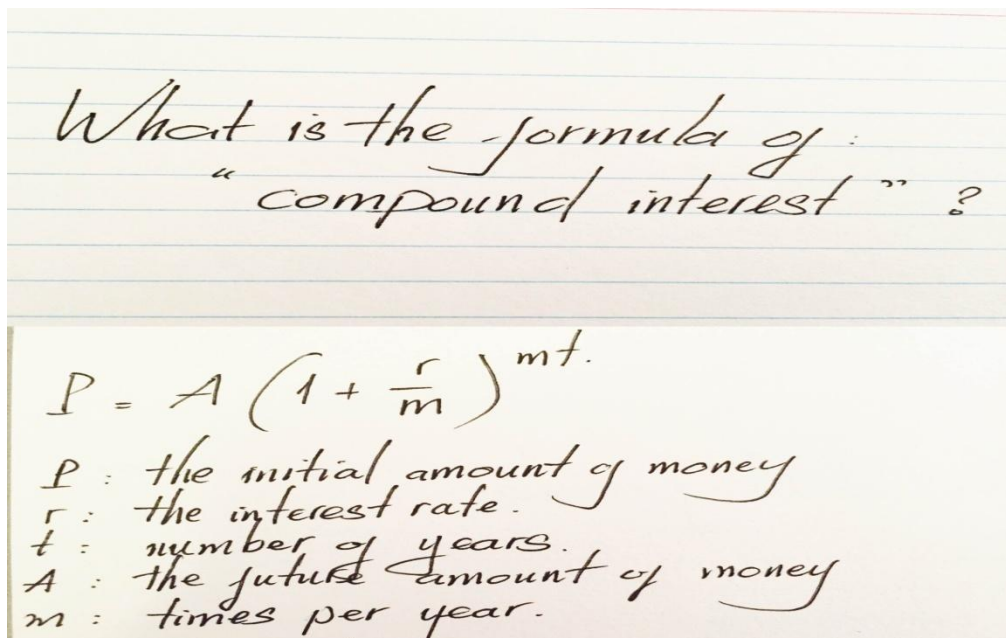 What is the formula of :
“ compound interest ” ?
P = A (1 + r/m)^mt.
P : the initial amount of money
r : the interest rate.
t : number of years.
A : the future amount of money
m : times per year.